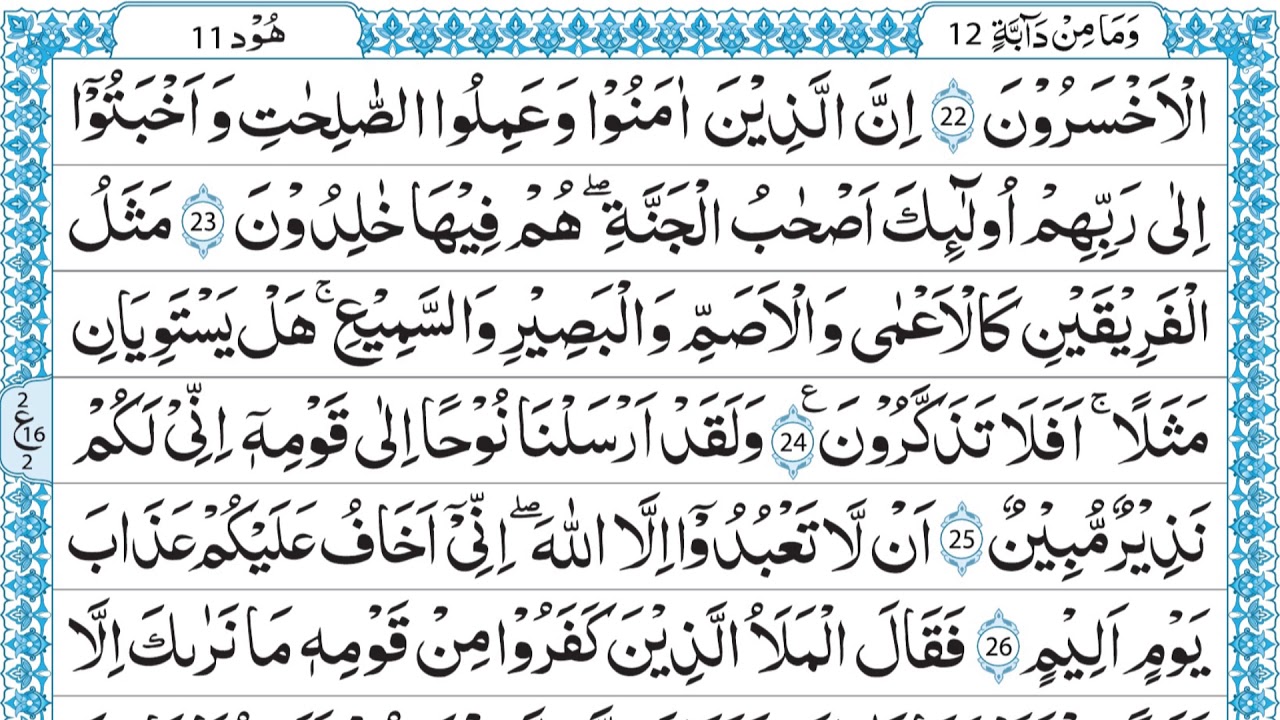 وَمَا مِنْ دَآبَّةٍ 12
هُوْد 11
الْاَخْسَرُوْنَ 22 اِنَّ الَّذِيْنَ اٰمَنُوْا وَعَمِلُوا الصّٰلِحٰتِ وَاَخْبَتُوْٓا
اِلٰى رَبِّهِمْ اُولٰٓئِكَ اَصْحٰبُ الْجَنَّةِ ۖ هُمْ فِيْهَا خٰلِدُوْنَ 23 مَثَلُ
الْفَرِيْقَيْنِ كَالْاَعْمٰى وَالْاَصَمِّ وَالْبَصِيْرِ وَالسَّمِيْعِ ۚ هَلْ يَسْتَوِيَانِ
مَثَلًا ۚ اَفَلَا تَذَكَّرُوْنَ 24 ع وَلَقَدْ اَرْسَلْنَا نُوْحًا اِلٰى قَوْمِهٖٓ اِنِّيْ لَكُمْ
2
ع 16
2
نَذِيْرٌ مُّبِيْنٌ 25 اَنْ لَّا تَعْبُدُوْٓا اِلَّا اللّٰهَ ۖ اِنِّيْٓ اَخَافُ عَلَيْكُمْ عَذَابَ
يَوْمٍ اَلِيْمٍ 26 فَقَالَ الْمَلَاُ الَّذِيْنَ كَفَرُوْا مِنْ قَوْمِهٖ مَا نَرٰىكَ اِلَّا